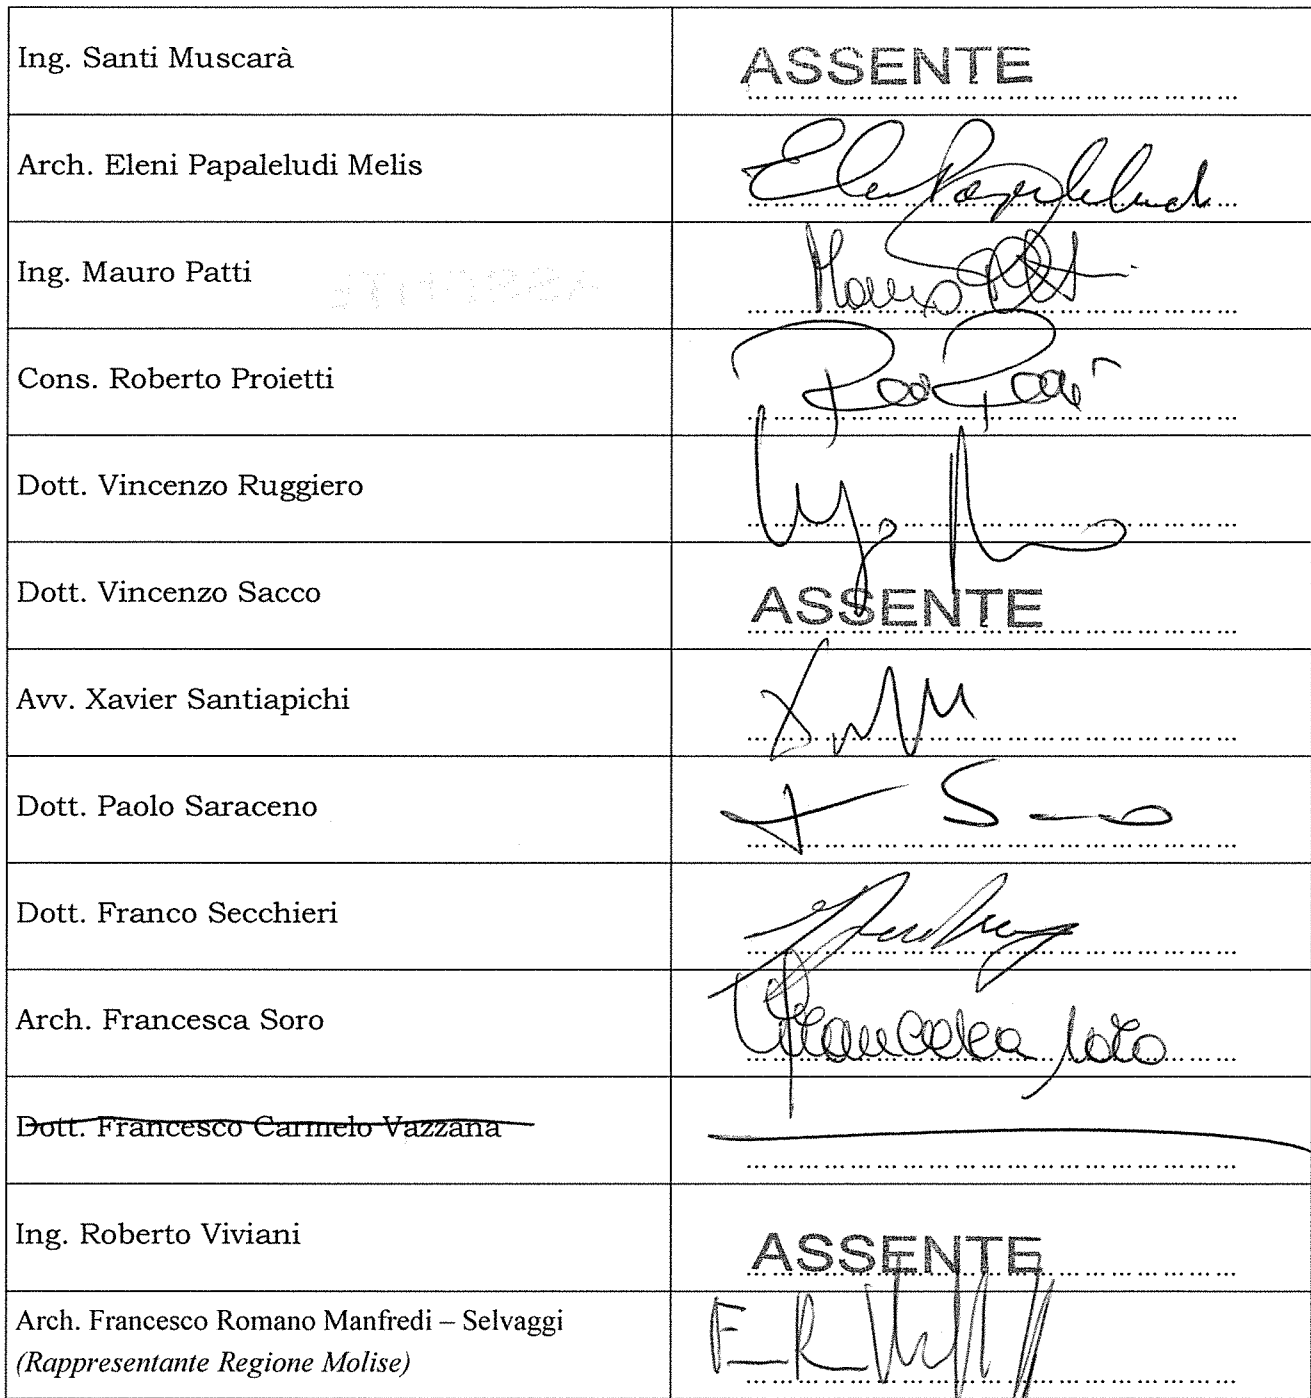 Ing. Santi Muscarà
ASSENTE
Arch. Eleni Papaleludi Melis
Ing. Mauro Patti
Mauro Patti
Cons. Roberto Proietti
Dott. Vincenzo Ruggiero
Dott. Vincenzo Sacco
ASSENTE
Avv. Xavier Santiapichi
Dott. Paolo Saraceno
Dott. Franco Secchieri
Arch. Francesca Soro
Francesca Soro
Dott. Francesco Carmelo Vazzana
Ing. Roberto Viviani
ASSENTE
Arch. Francesco Romano Manfredi – Selvaggi
(Rappresentante Regione Molise)